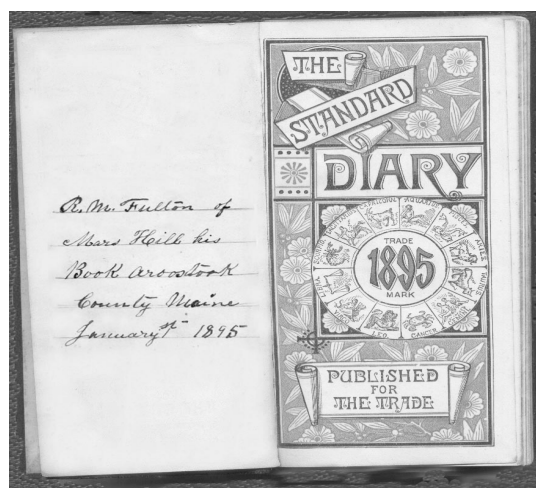 R. M. Fulton of
Mars Hill his
Book Aroostook
County Maine
January 1st 1895
THE
STANDARD
DIARY
TRADE
1895
MARK
LEO
CANCER
PUBLISHED
FOR
THE TRADE